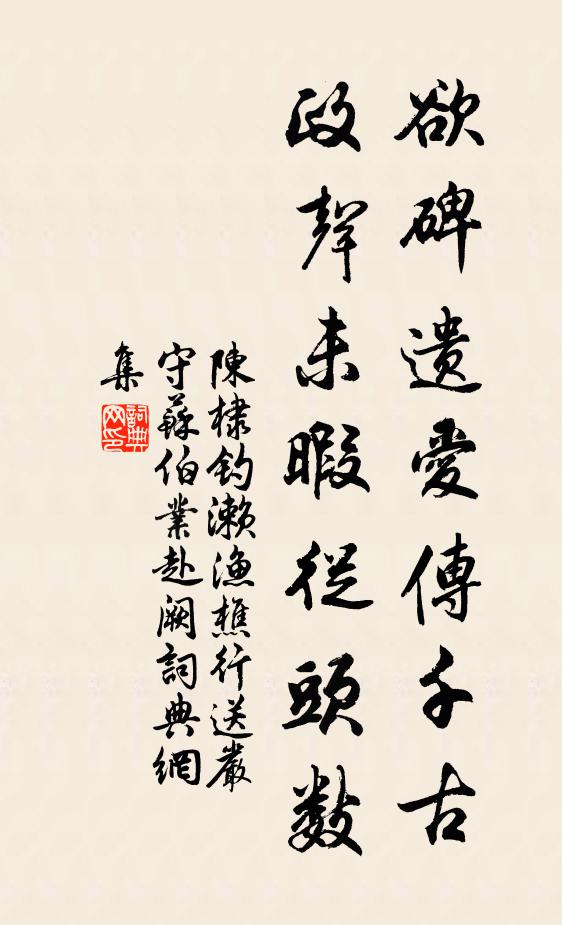 欲碑遺愛傳千古
政聲未暇從頭數
陳棣釣瀨漁樵行送嚴
守蘇伯業赴闕詞典網
集
詞典
网印